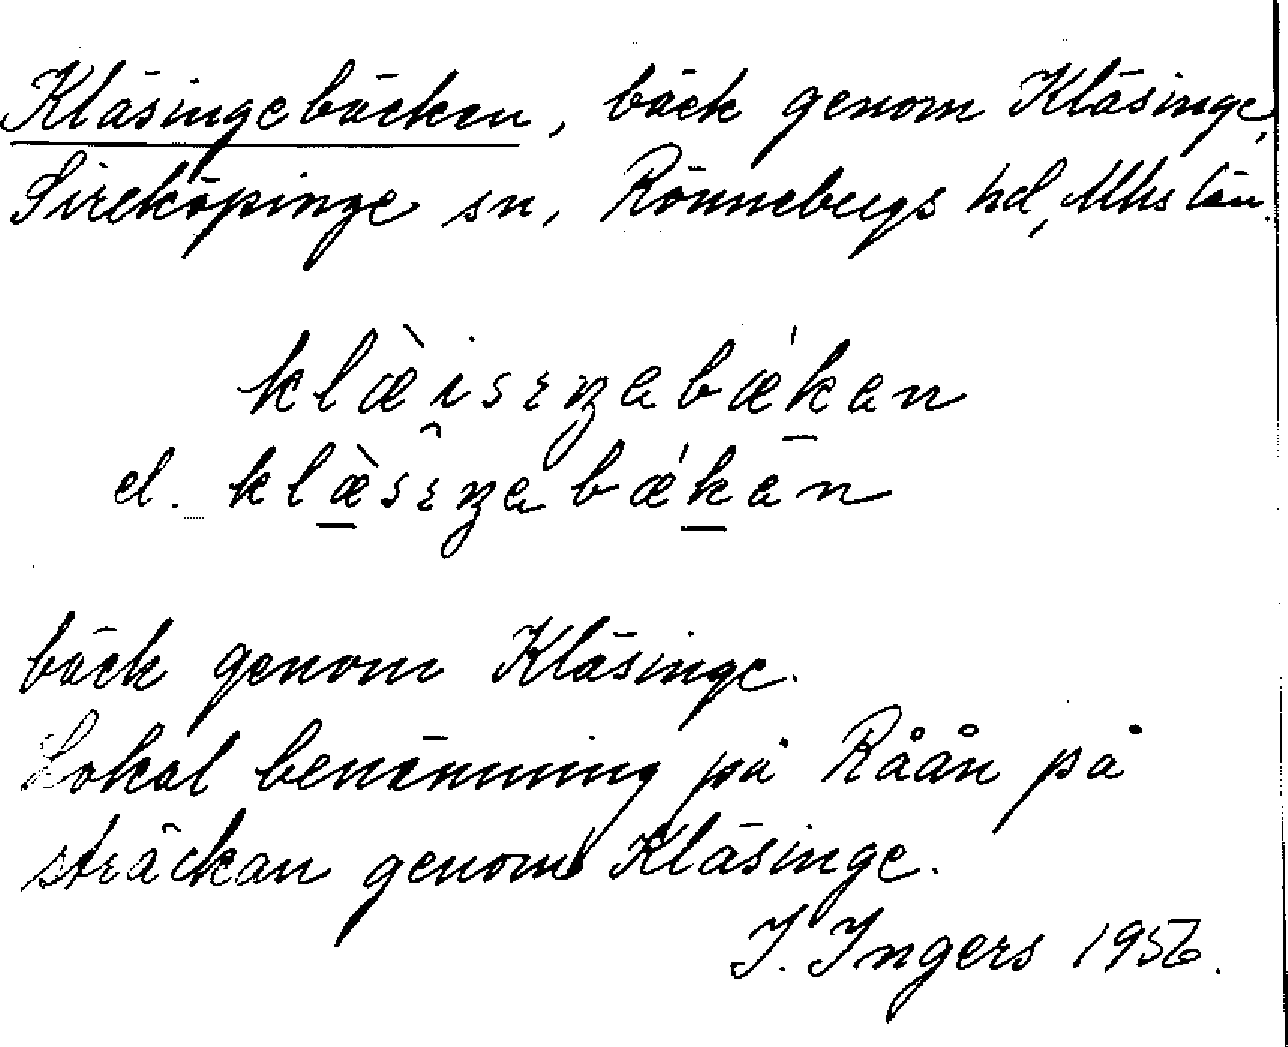 Kläsingebäcken, bäck genom Kläsinge,
Sireköpinge sn, Rönnebergs hd, Mhs län.
klæ̀isɛŋabǽkan
el. klæ̀sɛŋabǽkan
bäck genom Kläsinge.
Lokal benämning på Råån på
sträckan genom Kläsinge.
I. Ingers 1956.